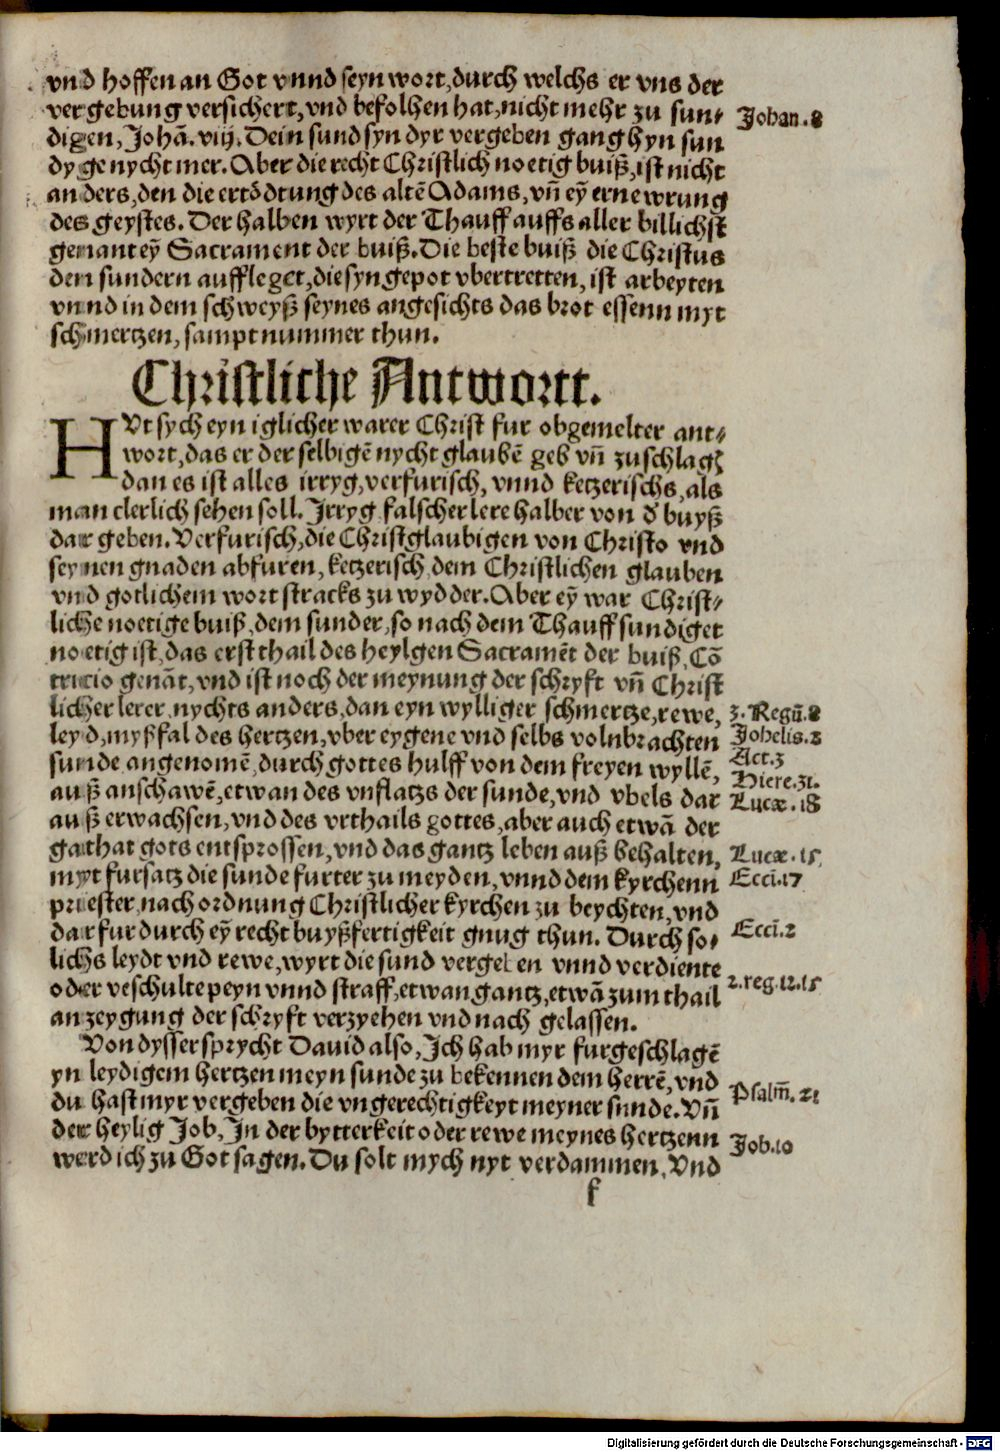 vnd hoffen an Got vnnd seyn wort, durch welchs er vns der
vergebung versichert, vnd befolhen hat, nicht mehr zu sun⸗
Johan. 8
digen, Johā. viij. Dein sund syn dyr vergeben gang hyn sun
dyge nycht mer. Aber die recht Christlich noetig buiß, ist nicht
anders, den die ertödtung des altē Adams, vñ eȳ ernewrung
des geystes. Der halben wyrt der Thauff auffs aller billichst
genant eȳ Sacrament der buiß. Die beste buiß die Christus
den sundern auffleget, die syn gepot vbertretten, ist arbeyten
vnnd in dem schweyß seynes angesichts das brot essenn myt
schmertzen, sampt nummer thun.
Christliche Antwortt.
HVt sych eyn iglicher warer Christ fur obgemelter ant⸗
wort, das er der selbigē nycht glaubē geb vñ zuschlag,
dan es ist alles irryg, verfurisch, vnnd ketzerischs, als
man clerlich sehen soll. Irryg falscher lere halber von d' buyß
dar geben. Verfurisch, die Christglaubigen von Christo vnd
seynen gnaden abfuren, ketzerisch dem Christlichen glauben
vnd gotlichem wort stracks zu wydder. Aber eȳ war Christ⸗
liche noetige buiß, dem sunder, so nach dem Thauff sundiget
noetig ist, das erst thail des heylgen Sacramēt der buiß, Cō
tricio genāt, vnd ist noch der meynung der schryft vñ Christ
licher lerer, nychts anders, dan eyn wylliger schmertze, rewe,
3. Regū. 8
leyd, myßfal des hertzen, vber eygene vnd selbs volnbrachten
Johelis. 2
sunde angenomē, durch gottes hulff von dem freyen wyllē,
Act. 3
Hiere. 31.
auß anschawē, etwan des vnflatzs der sunde, vnd vbels dar
Lucæ. 18
auß erwachsen, vnd des vrthails gottes, aber auch etwā der
gathat gots entsprossen, vnd das gantz leben auß behalten,
Lucæ. 15
myt fursatz die sunde furter zu meyden, vnnd dem kyrchenn
Ecci. 17
priester, nach ordnung Christlicher kyrchen zu beychten, vnd
dar fur durch eȳ recht buyßfertigkeit gnug thun. Durch so⸗
Ecci. 2
lichs leydt vnd rewe, wyrt die sund vergeben vnnd verdiente
oder veschulte peyn vnnd straff, etwan gantz, etwā zum thail
2. reg. 12. 15
anzeygung der schryft verzyehen vnd nach gelassen.
Von dysser sprycht David also, Ich hab myr furgeschlagē
yn leydigem hertzen meyn sunde zu bekennen dem herrē, vnd
du hast myr vergeben die vngerechtigkeyt meyner sunde. Vñ
Psalm̄. 21
der heylig Job, In der bytterkeit oder rewe meynes hertzenn
Job. 10
werd ich zu Got sagen. Du solt mych nyt verdammen, Vnd
f
Digitalisierung gefördert durch die Deutsche Forschungsgemeinschaft - DFG